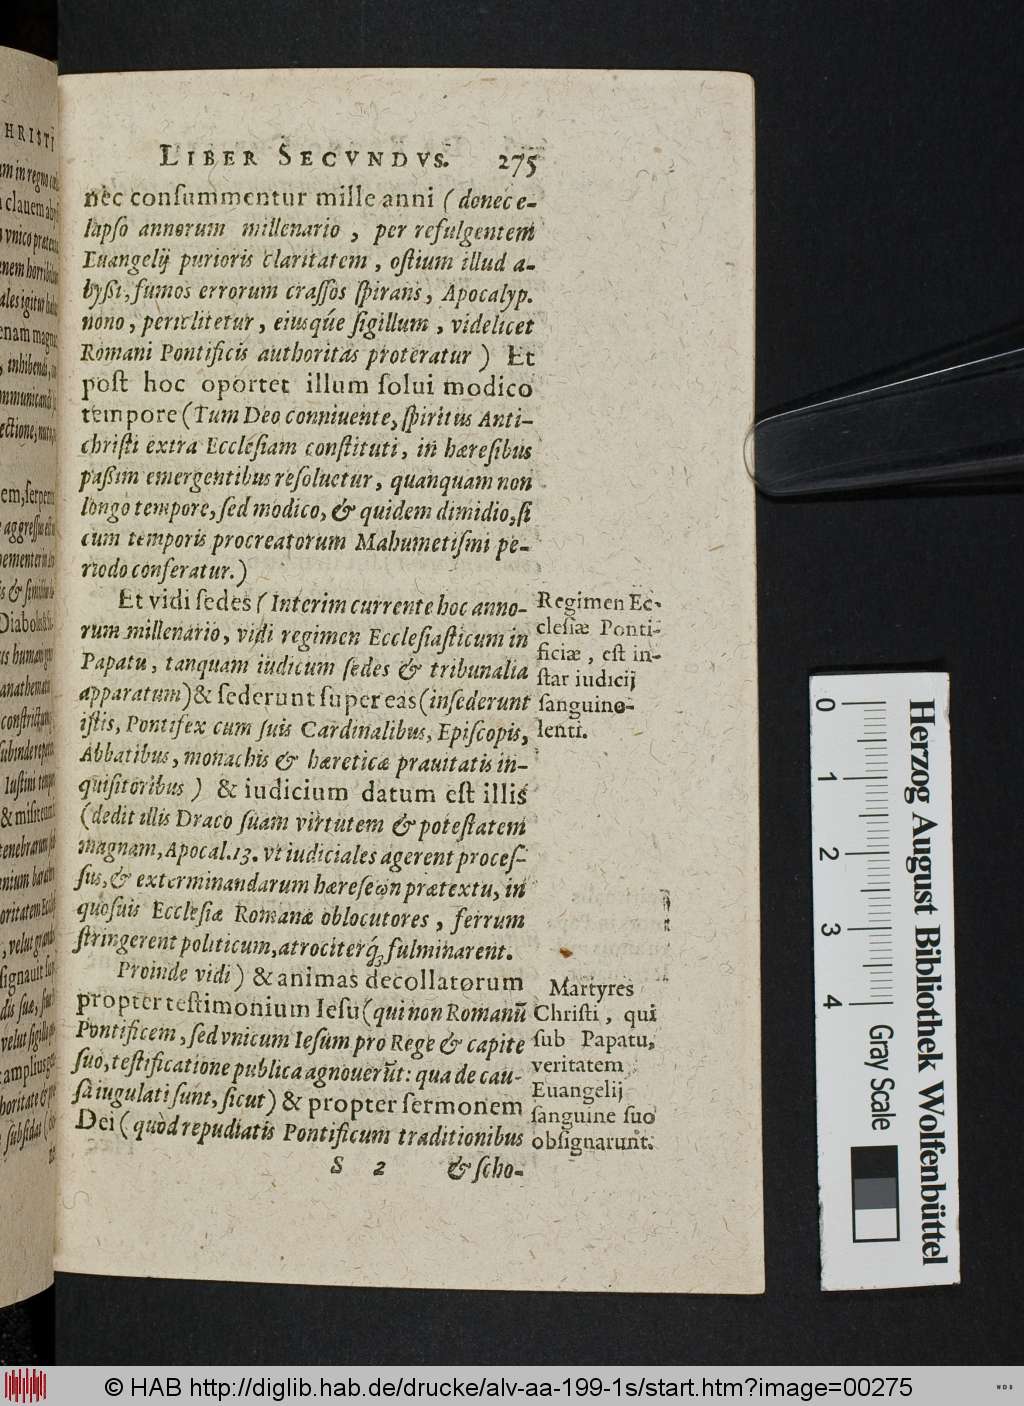 LIBER SECVNDVS. 275
nec consummentur mille anni ( donec e-
lapso annorum millenario , per refulgentem
Euangelij purioris claritatem , ostium illud a-
byssi, fumos errorum crassos spirans, Apocalyp.
nono, periclitetur, eiusq́ue sigillum, videlicet
Romani Pontificis authoritas proteratur ) Et
post hoc oportet illum solui modico
tempore (Tum Deo conniuente, spiritus Anti-
christi extra Ecclesiam constituti, in hæresibus
passim emergentibus resoluetur, quanquam non
longo tempore, sed modico, & quidem dimidio, si
cum temporis procreatorum Mahumetismi pe-
riodo conferatur.)
Et vidi sedes ( Interim currente hoc anno-
rum millenario, vidi regimen Ecclesiasticum in
Papatu, tanquam iudicum sedes & tribunalia
apparatum) & sederunt super eas (insederunt
istis, Pontifex cum suis Cardinalibus, Episcopis,
Abbatibus, monachis & hæreticæ prauitatis in-
quisitoribus ) & iudicium datum est illis
(dedit illis Draco suam virtutem & potestatem
magnam, Apocal. 13. vt iudiciales agerent proces-
sus, & exterminandarum hæreseωn prætextu, in
quosuis Ecclesiæ Romanæ oblocutores, ferrum
stringerent politicum, atrociterq́; fulminarent.
Proinde vidi ) & animas decollatorum
propter testimonium Iesu (qui non Romanū
Pontificem, sed vnicum Iesum pro Rege & capite
suo, testificatione publica agnouerūt: qua de cau-
sa iugulati sunt, sicut) & propter sermonem
Dei ( quòd repudiatis Pontificum traditionibus
S 2 & scho-
Regimen Ec-
clesiæ Ponti-
ficiæ, est in-
star iudicij
sanguino-
lenti.
Martyres
Christi, qui
sub Papatu,
veritatem
Euangelij
sanguine suo
obsignarunt.
HRISTI
Herzog August Bibliothek Wolfenbüttel
0 1 2 3 4
Gray Scale
© HAB http://diglib.hab.de/drucke/alv-aa-199-1s/start.htm?image=00275